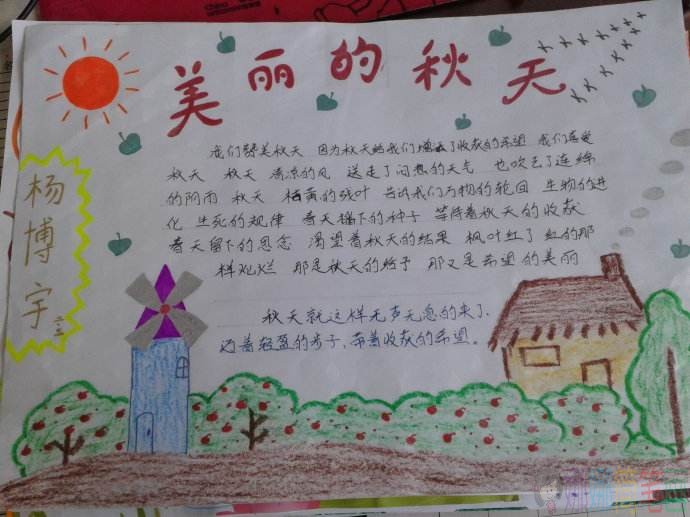 美丽的秋天
我们赞美秋天 因为秋天给我们增添了收获的希望 我们喜爱
秋天 秋天 清凉的风 送走了闷热的天气 也吹色了连绵
的阴雨 秋天 枯黄的残叶 告诉我们万物的轮回 生物的进
化 生死的规律 春天播下的种子 等待着秋天的收获
春天留下的思念 渴望着秋天的结果 枫叶红了 红的那
样灿烂 那是秋天的给予 那又是希望的美丽
秋天就这样无声无息的来了,
迈着轻盈的步子、带着收获的希望。
杨博宇